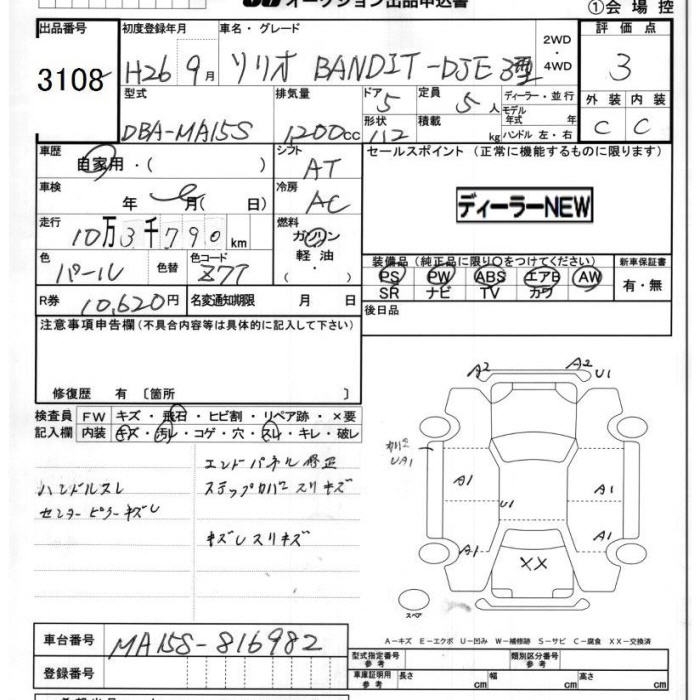 オークション出品申込書
①会場控
出品番号
初度登録年月
車名・グレード
2WD
・
4WD
評価点
3108
H26 9月
ソリオ BANDIT-DJE 3型
3
型式
排気量
ドア 5
定員 5人
ディーラー・並行
モデル
年式 年
外装 内装
DBA-MA15S
1200cc
形状 112
積載 kg
ハンドル 左・右
C C
車歴
自家用・( )
シフト
AT
セールスポイント (正常に機能するものに限ります)
車検
年 月( 日)
冷房
AC
ディーラーNEW
走行
10万3千790km
燃料
ガソリン
軽油
( ・ )
色
パール
色替
色コード
Z7T
装備品 (純正品に限り○をつけてください)
新車保証書
PS PW ABS エアB AW
有・無
SR ナビ TV カワ
R券 10,620円
名変通知期限 月 日
後日品
注意事項申告欄(不具合内容等は具体的に記入して下さい)
修復歴 有 〔箇所 〕
検査員
記入欄
FW キズ・飛石・ヒビ割・リペア跡・×要
内装 キズ・汚レ・コゲ・穴・スレ・キレ・破レ
エンドパネル修正
ハンドルスレ
ステップカバースリキズ
センターピラーキズレ
キズレスリキズ
A2
A2 U1
カバー
UA1
A1
A1
U1
A1
A1
XX
スペア
A-キズ E-エクボ U-凹み W-補修跡 S-サビ C-腐食 XX-交換済
車台番号
MA15S-816982
登録番号
型式指定番号
参考
類別区分番号
参考
車庫証明用
参考
長さ cm
幅 cm
高さ cm